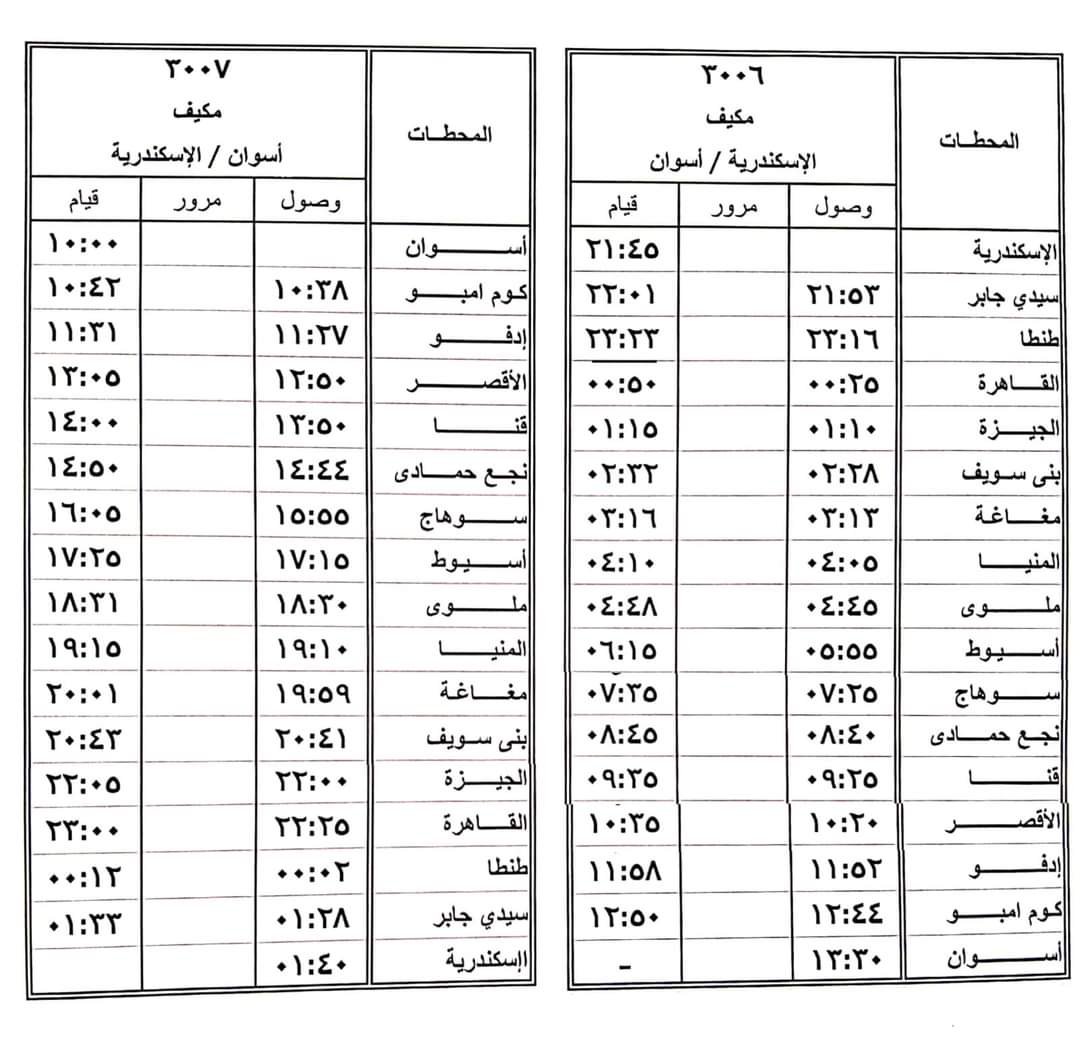 المحطات
٣٠٠٦
مكيف
الإسكندرية / أسوان
وصول مرور قيام
الإسكندرية ٢١:٤٥
سيدي جابر ٢١:٥٣ ٢٢:٠١
طنطا ٢٣:١٦ ٢٣:٢٣
القاهرة ٠٠:٢٥ ٠٠:٥٠
الجيزة ٠١:١٠ ٠١:١٥
بنى سويف ٠٢:٢٨ ٠٢:٣٢
مغاغة ٠٣:١٣ ٠٣:١٦
المنيا ٠٤:٠٥ ٠٤:١٠
ملوى ٠٤:٤٥ ٠٤:٤٨
أسيوط ٠٥:٥٥ ٠٦:١٥
سوهاج ٠٧:٢٥ ٠٧:٣٥
نجع حمادى ٠٨:٤٠ ٠٨:٤٥
قنا ٠٩:٢٥ ٠٩:٣٥
الأقصر ١٠:٢٠ ١٠:٣٥
إدفو ١١:٥٢ ١١:٥٨
كوم امبو ١٢:٤٤ ١٢:٥٠
أسوان ١٣:٣٠ –
المحطات
٣٠٠٧
مكيف
أسوان / الإسكندرية
وصول مرور قيام
أسوان ١٠:٠٠
كوم امبو ١٠:٣٨ ١٠:٤٢
إدفو ١١:٢٧ ١١:٣١
الأقصر ١٢:٥٠ ١٣:٠٥
قنا ١٣:٥٠ ١٤:٠٠
نجع حمادى ١٤:٤٤ ١٤:٥٠
سوهاج ١٥:٥٥ ١٦:٠٥
أسيوط ١٧:١٥ ١٧:٢٥
ملوى ١٨:٣٠ ١٨:٣١
المنيا ١٩:١٠ ١٩:١٥
مغاغة ١٩:٥٩ ٢٠:٠١
بنى سويف ٢٠:٤١ ٢٠:٤٣
الجيزة ٢٢:٠٠ ٢٢:٠٥
القاهرة ٢٢:٢٥ ٢٣:٠٠
طنطا ٠٠:٠٢ ٠٠:١٢
سيدي جابر ٠١:٢٨ ٠١:٣٣
اإسكندرية ٠١:٤٠